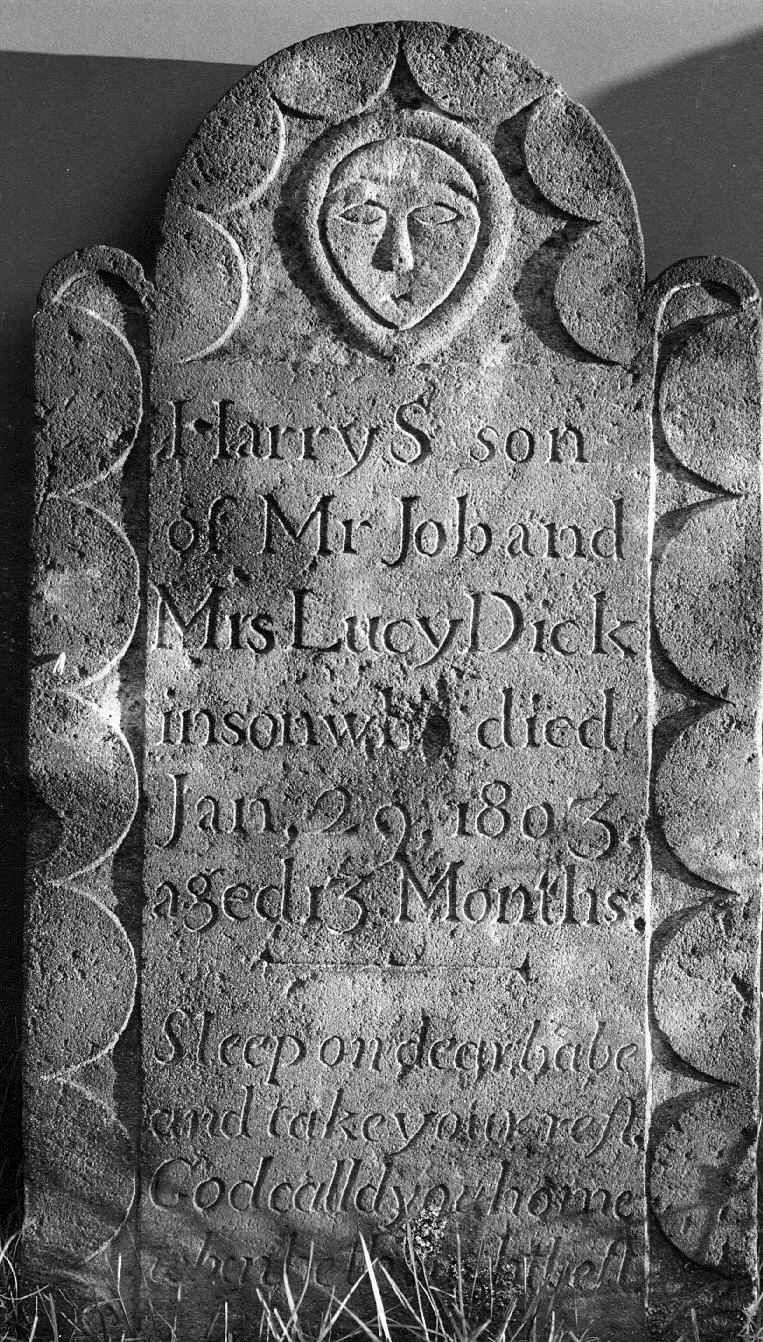 Harry S son
of Mr Job and
Mrs Lucy Dick
inson who died
Jan, 29, 1803,
aged 13 Months.
Sleep on dear babe
and take your reſt
God calld you home
when he thought beſt